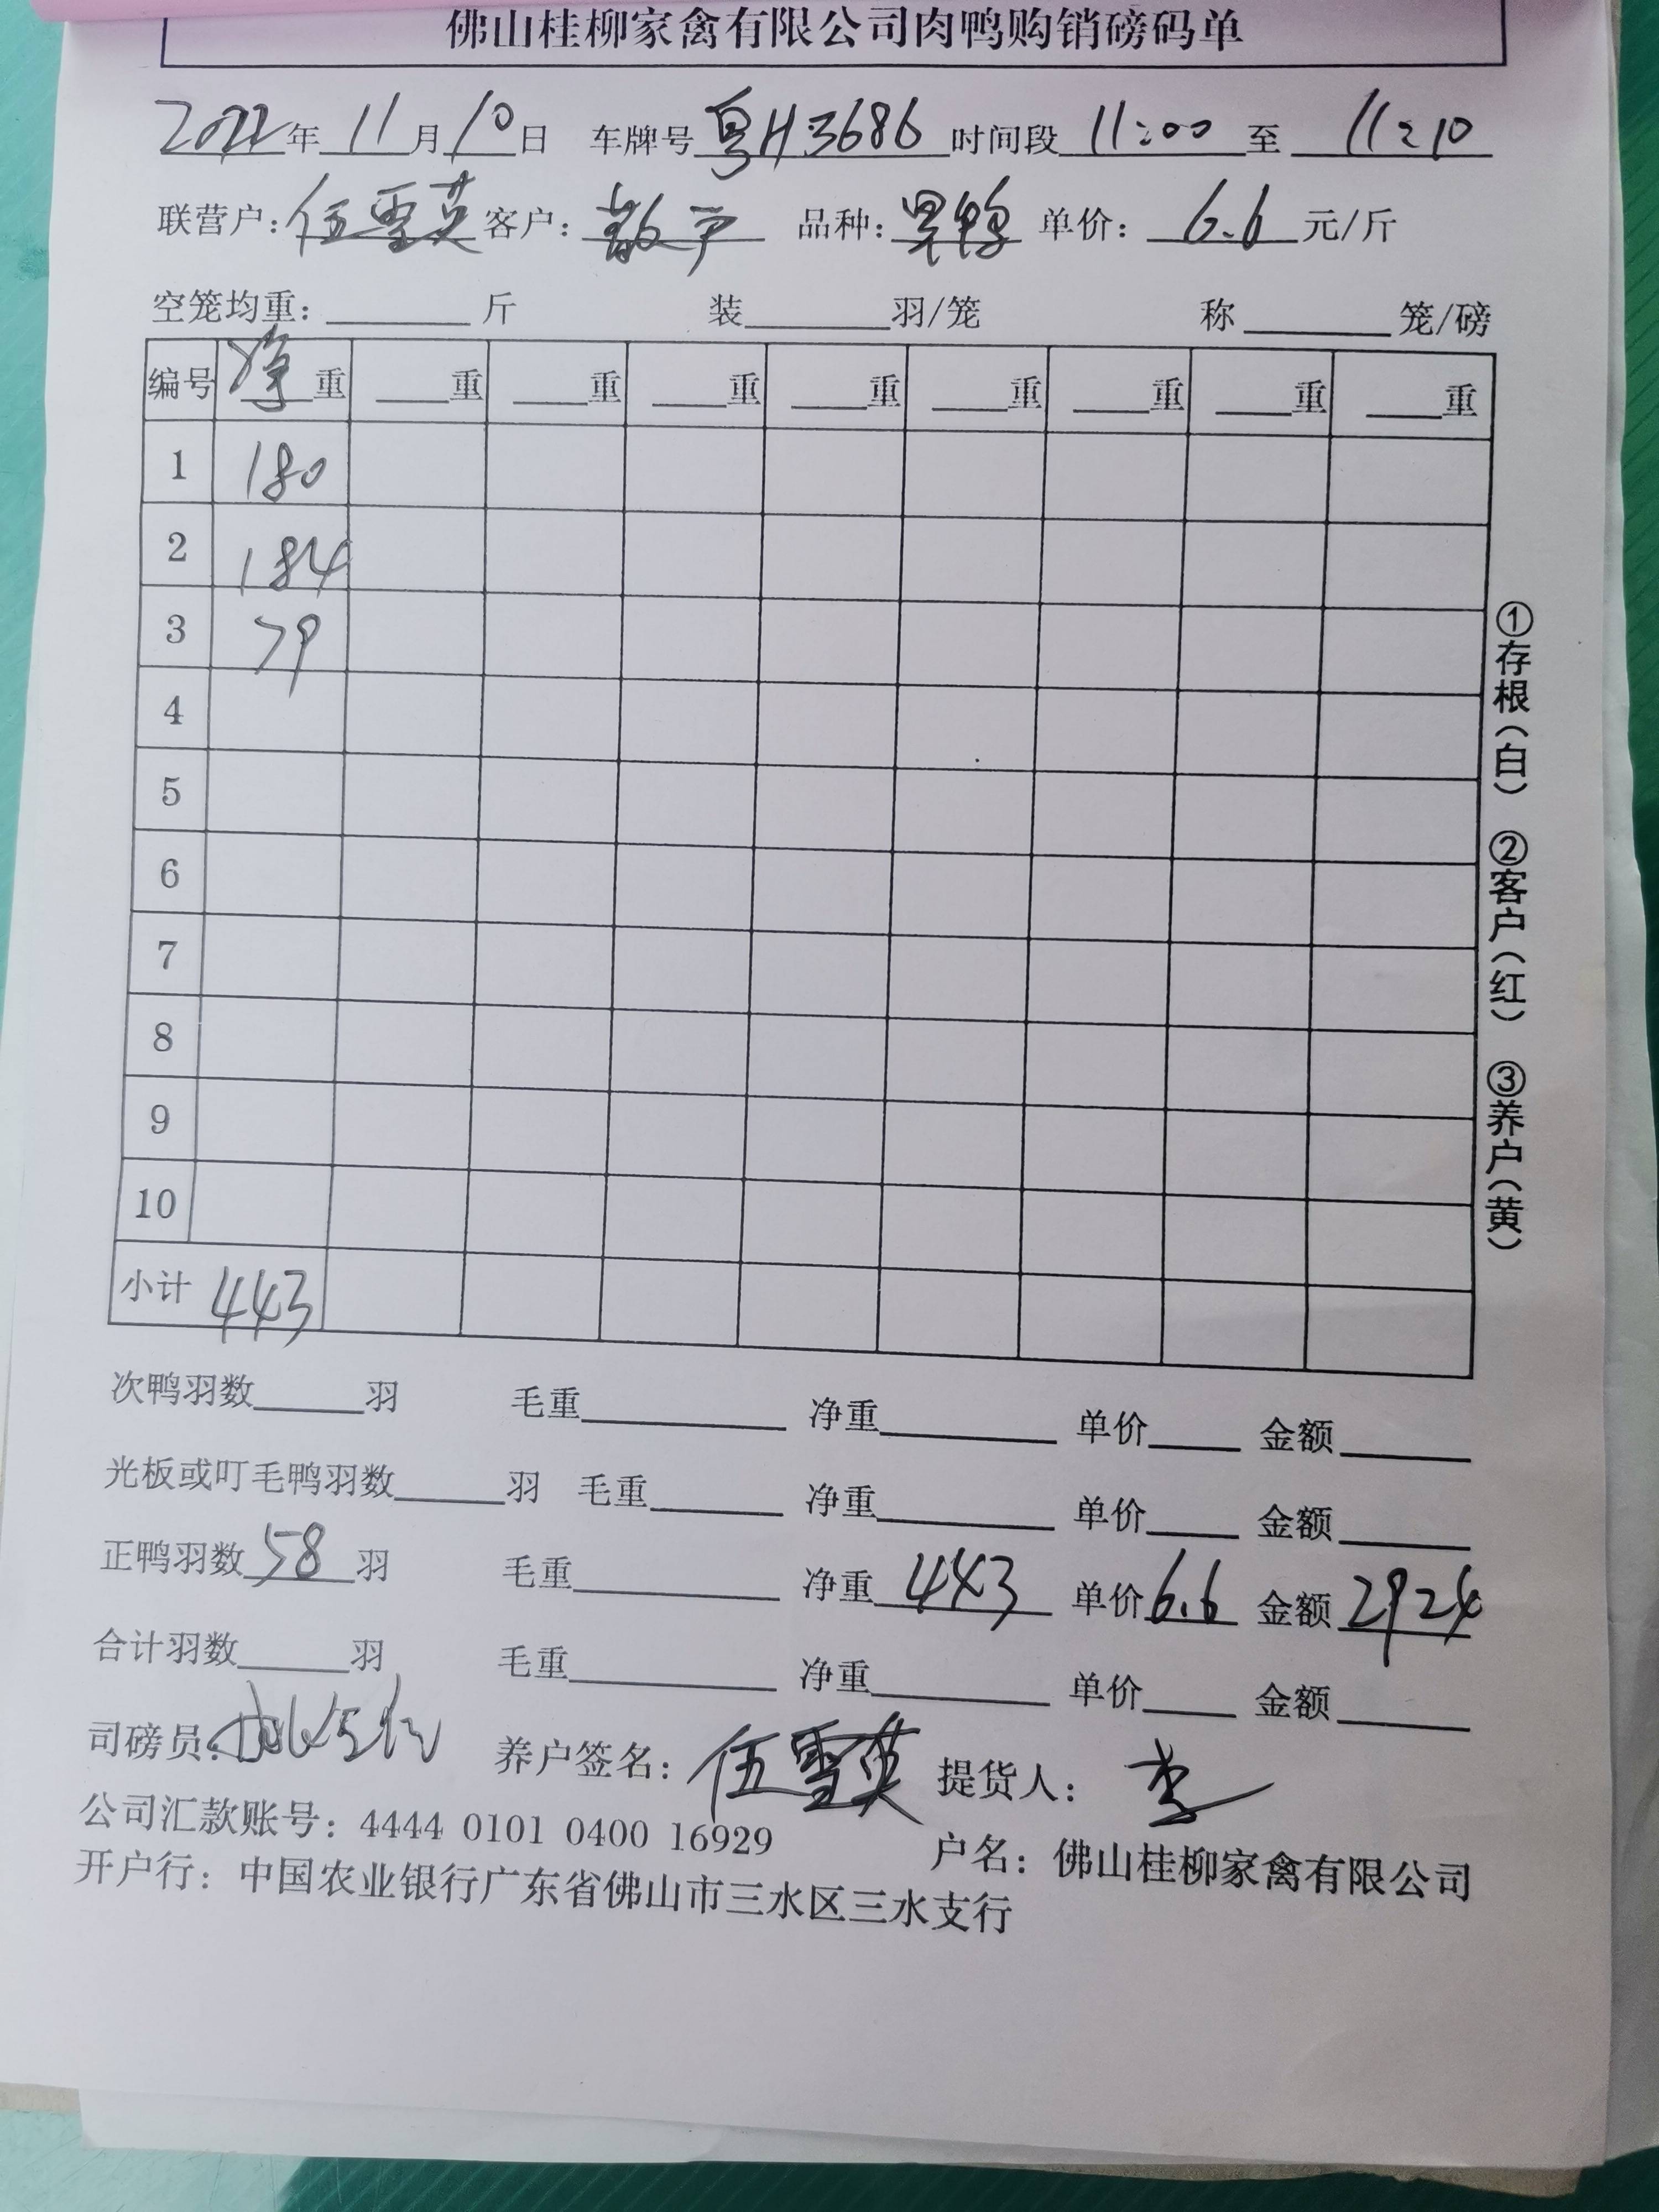 佛山桂柳家禽有限公司肉鸭购销磅码单
2022年 11月10日 车牌号 粤H3686 时间段 11:00 至 11:10
联营户:伍雪英 客户:散户 品种:果鸭 单价: 6.6 元/斤
空笼均重: 斤 装 羽/笼 称 笼/磅
编号 净重 重 重 重 重 重 重 重 重
1 180
2 184
3 79
4
5
6
7
8
9
10
小计 443
①存根(白) ②客户(红) ③养户(黄)
次鸭羽数 羽 毛重 净重 单价 金额
光板或叮毛鸭羽数 羽 毛重 净重 单价 金额
正鸭羽数 58 羽 毛重 净重 443 单价 6.6 金额 2924
合计羽数 羽 毛重 净重 单价 金额
司磅员: 养户签名: 伍雪英 提货人: 李
公司汇款账号: 4444 0101 0400 16929 户名: 佛山桂柳家禽有限公司
开户行: 中国农业银行广东省佛山市三水区三水支行